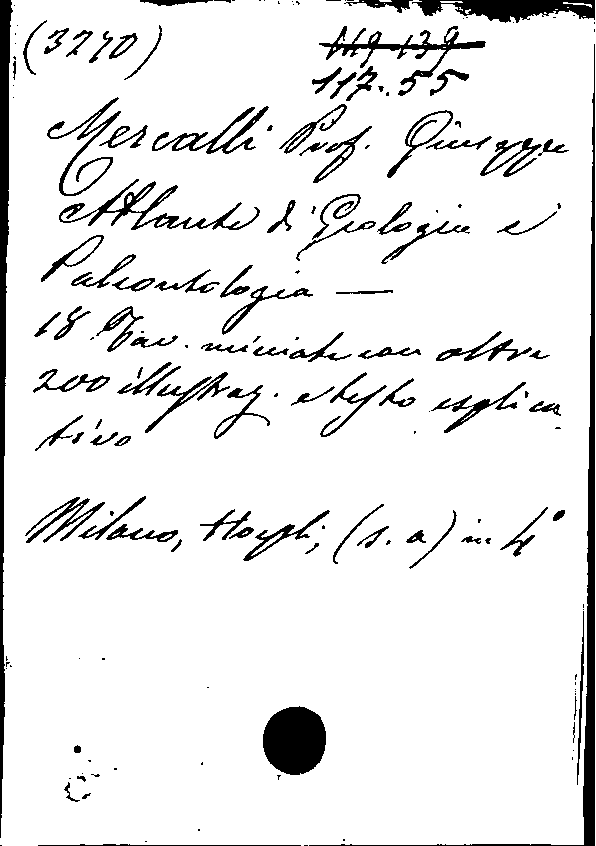 (3270)
119.139
117.55
Mercalli Prof. Giuseppe
Atlante di Geologia e
Paleontologia —
18 Tav. miniate con oltre
200 illustraz. e testo esplica
tivo
Milano, Hoepli, (s. a) in 4°